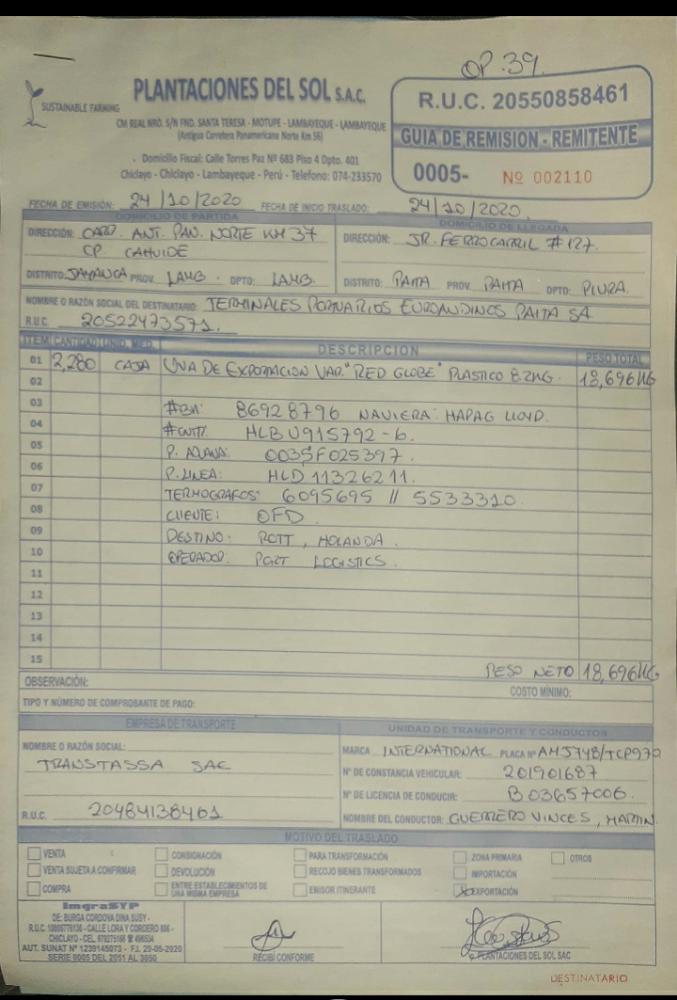 OP. 39
SUSTAINABLE FARMING
PLANTACIONES DEL SOL S.A.C.
CM REAL NRO. S/N FND. SANTA TERESA - MOTUPE - LAMBAYEQUE - LAMBAYEQUE
(Antigua Carretera Panamericana Norte Km 56)
Domicilio Fiscal: Calle Torres Paz Nº 683 Piso 4 Dpto. 401
Chiclayo - Chiclayo - Lambayeque - Perú - Telefono: 074-233570
R.U.C. 20550858461
GUIA DE REMISION - REMITENTE
0005- Nº 002110
FECHA DE EMISIÓN: 24/10/2020 FECHA DE INICIO TRASLADO: 24/10/2020
DOMICILIO DE PARTIDA
DIRECCIÓN: CARR. ANT. PAN. NORTE KM 37
CP. CAHUIDE
DISTRITO: JAYANCA PROV. LAMB. DPTO: LAMB.
DOMICILIO DE LLEGADA
DIRECCIÓN: JR. FERROCARRIL # 127.
DISTRITO: PAITA PROV. PAITA DPTO: PIURA.
NOMBRE O RAZÓN SOCIAL DEL DESTINATARIO: TERMINALES PORTUARIOS EUROANDINOS PAITA SA
R.U.C. 20522473571.
ITEM CANTIDAD UNID. MED. DESCRIPCION PESO TOTAL
01 2,280 CAJA UVA DE EXPORTACION VAR. "RED GLOBE" PLASTICO 8.2KG. 18,696KG
02
03 #BK: 86928796 NAVIERA: HAPAG LLOYD.
04 #CNTT: HLBU915792-6.
05 P. ADUANA: 0035F025397.
06 P. LINEA: HLD 11326211.
07 TERMOGRAFOS: 6095695 // 5533310.
08 CLIENTE: OFD.
09 DESTINO: ROTT, HOLANDA.
10 OPERADOR: PORT LOGISTICS.
11
12
13
14
15 PESO NETO 18,696KG
OBSERVACIÓN: COSTO MÍNIMO:
TIPO Y NÚMERO DE COMPROBANTE DE PAGO:
EMPRESA DE TRANSPORTE
NOMBRE O RAZÓN SOCIAL:
TRANSTASSA SAC
R.U.C. 20484138461
UNIDAD DE TRANSPORTE Y CONDUCTOR
MARCA INTERNATIONAL PLACA Nº AMJ748/TCP970
Nº DE CONSTANCIA VEHICULAR: 201901687
Nº DE LICENCIA DE CONDUCIR: B03657006.
NOMBRE DEL CONDUCTOR: GUERRERO VINCES, MARTIN.
MOTIVO DEL TRASLADO
VENTA CONSIGNACIÓN PARA TRANSFORMACIÓN ZONA PRIMARIA OTROS
VENTA SUJETA A CONFIRMAR DEVOLUCIÓN RECOJO BIENES TRANSFORMADOS IMPORTACIÓN
COMPRA ENTRE ESTABLECIMIENTOS DE UNA MISMA EMPRESA EMISOR ITINERANTE X EXPORTACIÓN
ImgraSYP
DE: BURGA CORDOVA DINA SUSY -
R.U.C. 10806778136 - CALLE LORA Y CORDERO 806 -
CHICLAYO - CEL. 979275168 ☎ 496534
AUT. SUNAT Nº 1239145073 - F.I. 29-05-2020
SERIE 0005 DEL 2051 AL 3050
RECIBÍ CONFORME
PLANTACIONES DEL SOL SAC
DESTINATARIO